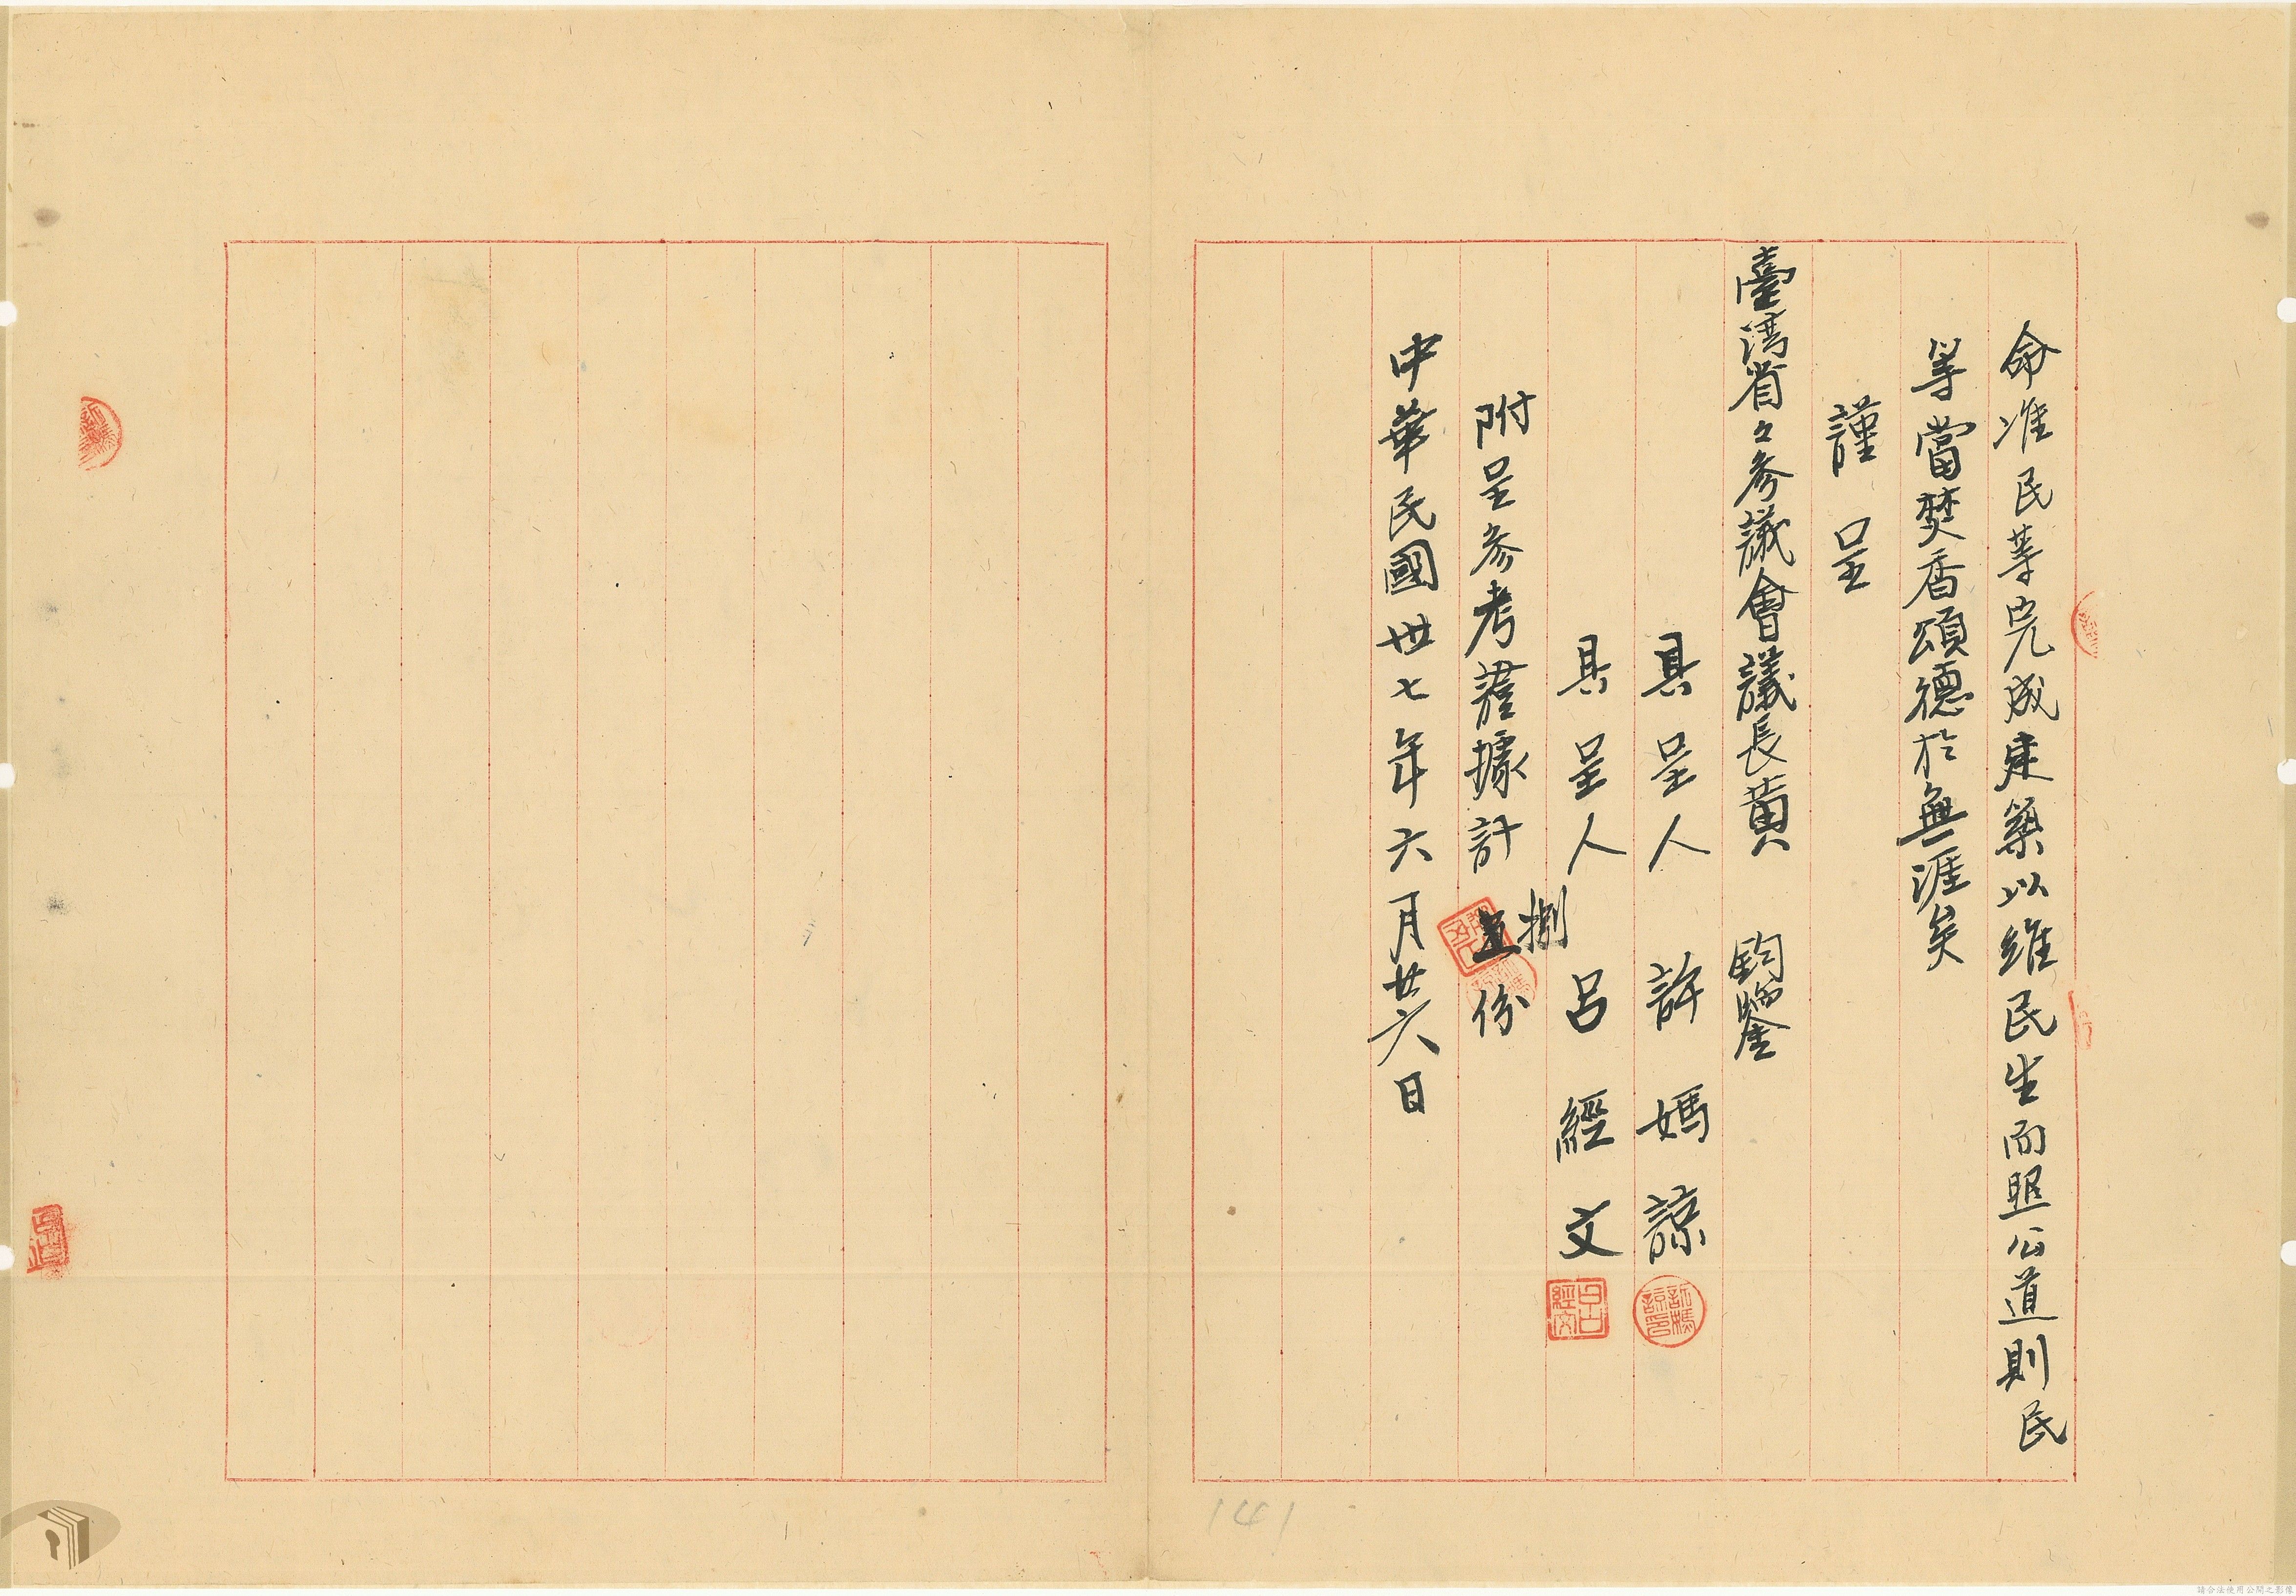 命准民等完成建築以維民生而照公道則民
等當焚香頌德於無涯矣
謹呈
臺湾省々參議會議長黃 鈞鑒
具呈人 許媽諒
許媽諒印
具呈人 呂經文
呂經文
附呈參考證據計捌份
中華民國卅七年六月廿六日
141
請合法使用公開之影像